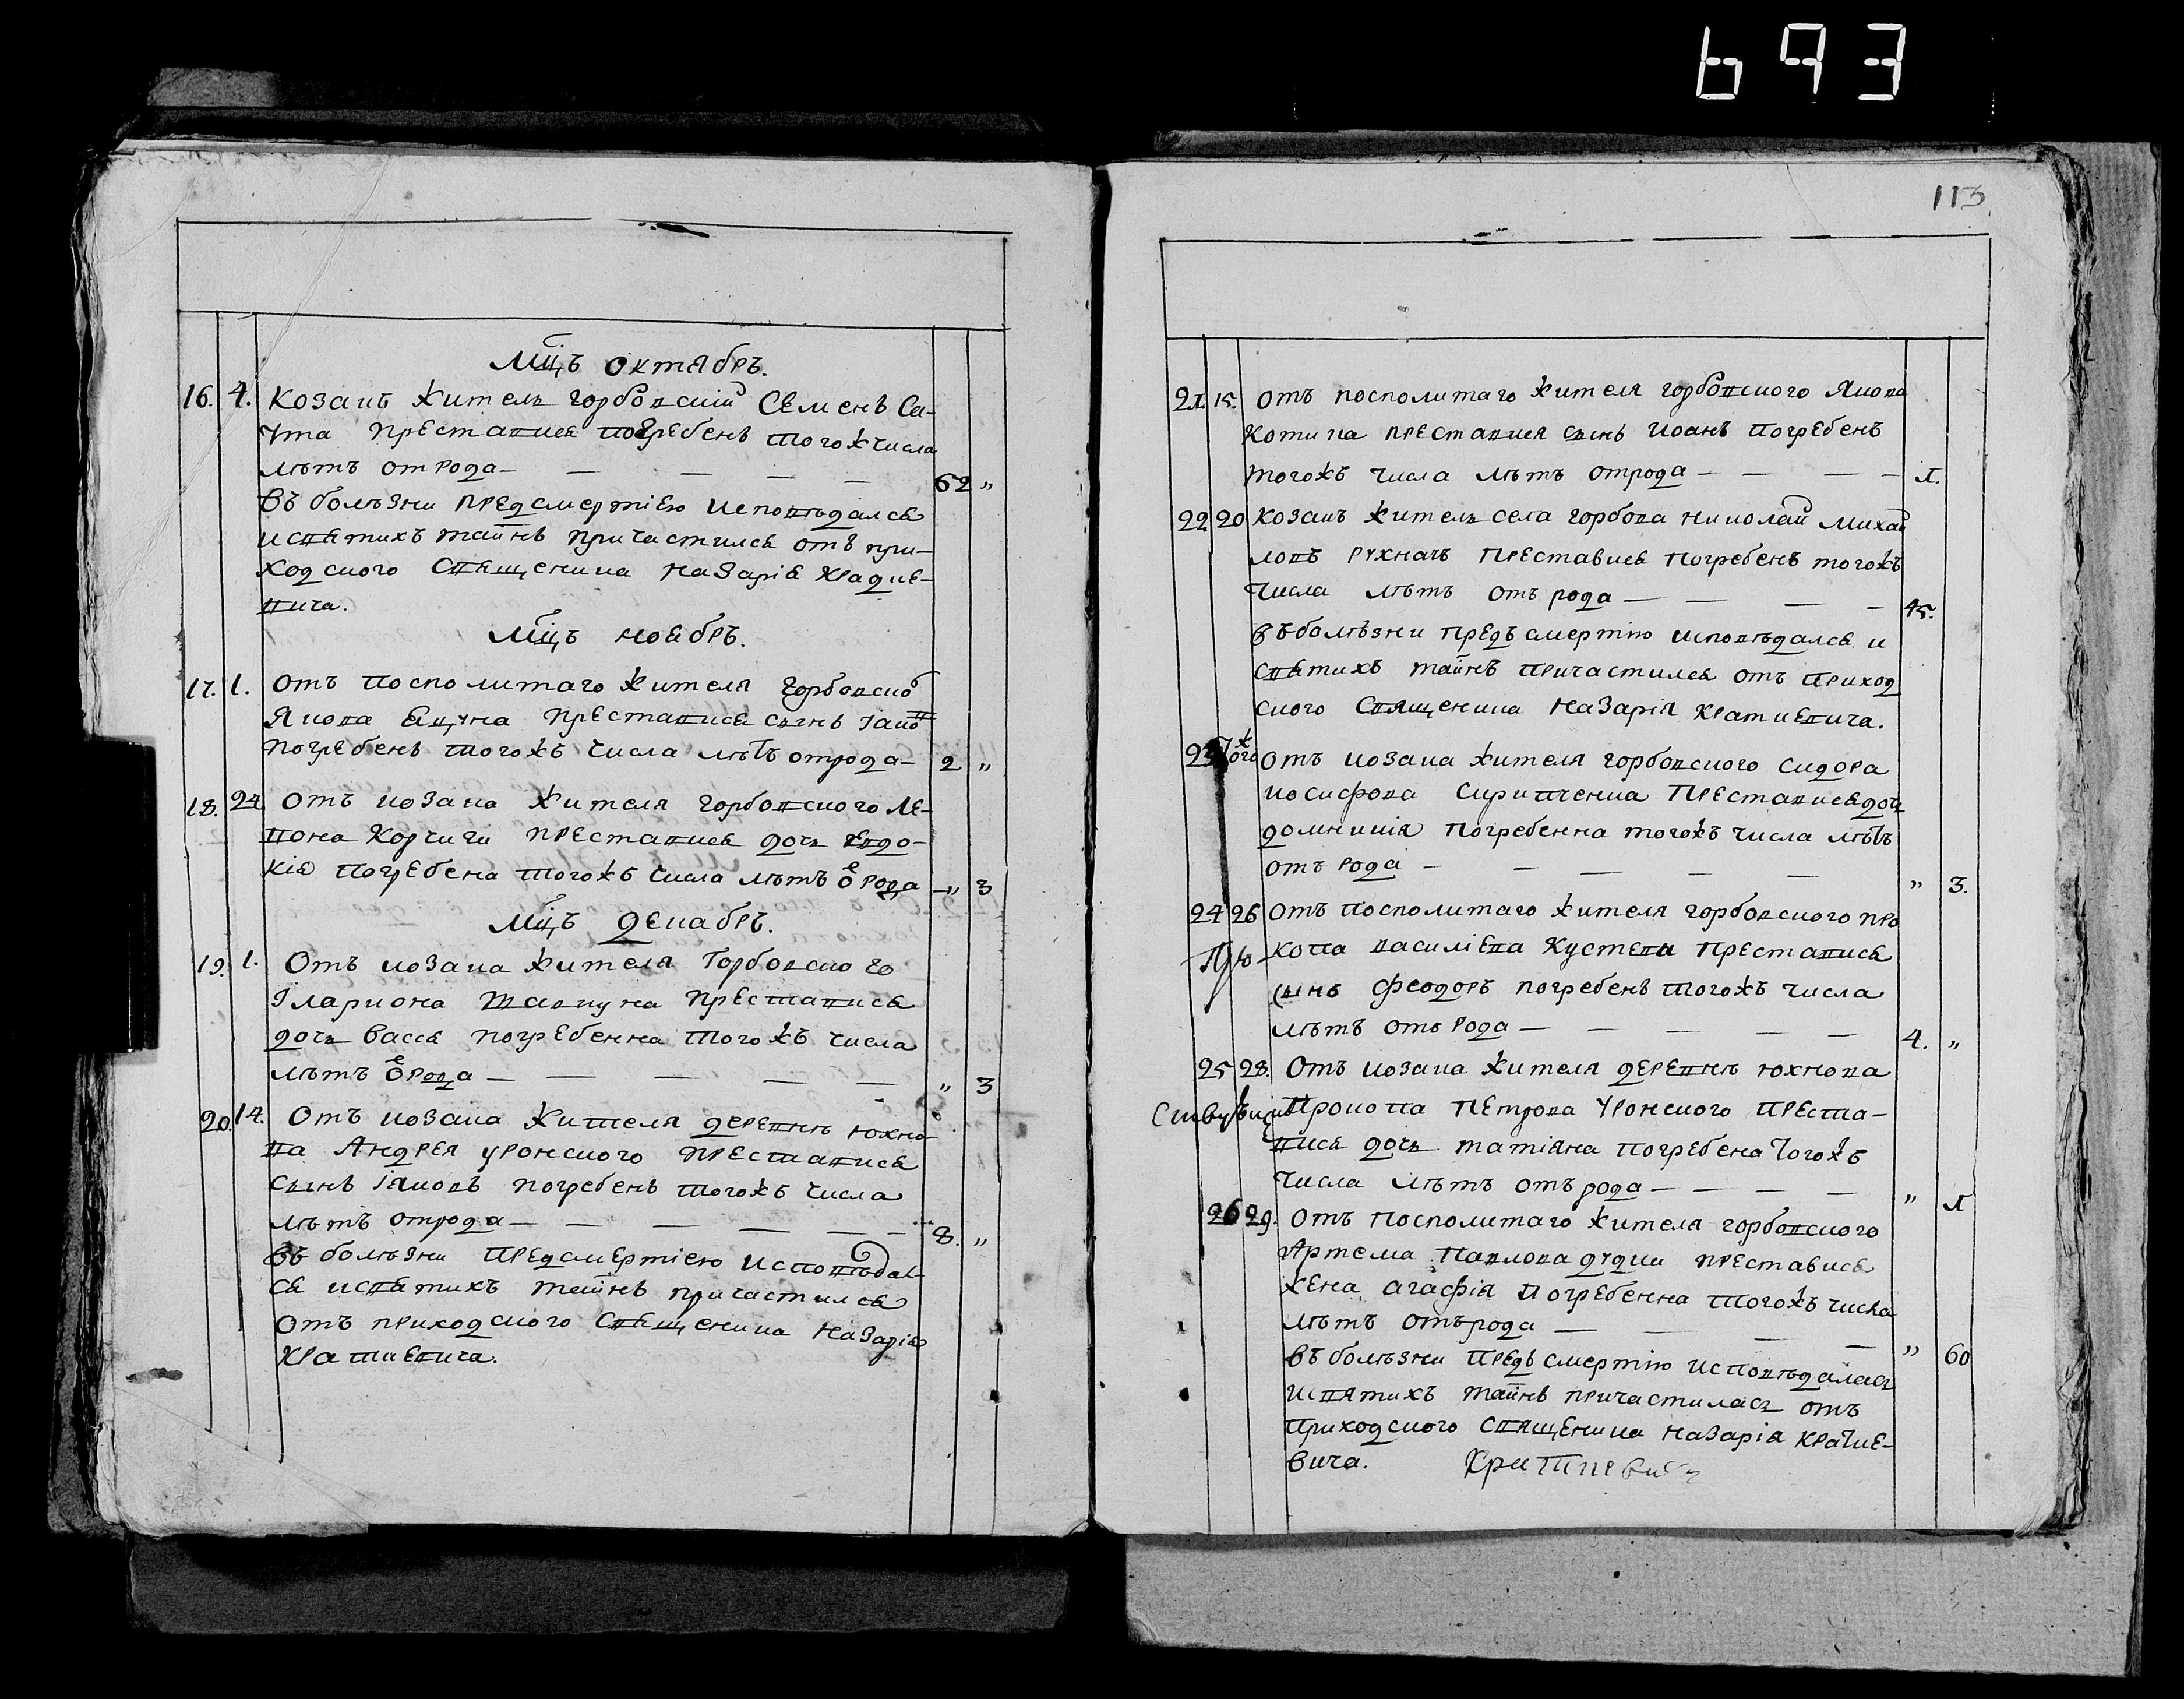 693
Мцъ октябръ.
16. 4. Козакъ житель горбовский Семенъ Са-
ута преставися погребенъ тогожъ числа
лѣтъ отрода — 62 „
въ болѣзни предсмертїею исповѣдался
исвятихъ тайнъ причастился отъ при-
ходского священика Назарїя
вича.
Мцъ ноябръ.
17. 1. отъ посполитаго жителя горбовско
Якова преставися синъ
погребенъ тогожъ числа лѣтъ отрода — 2 „
18. 24 отъ козака жителя горбовского Ле-
вона Корчиги преставися дочь Евдо-
кія погребена тогожъ числа лѣтъ ѿ рода — „ 3
Мцъ декабръ.
19. 1. Отъ козака жителя Горбовского
Іллариона преставися
дочь Васся погребенна тогожъ числа
лѣтъ ѿ рода — „ 3
20. 14. Отъ козака жителя деревнѣ юхно-
ва Андрея уронского преставися
синъ Іяковъ погребенъ тогожъ числа
лѣтъ отрода — 8. „
въ болѣзни предсмертїею исповѣдал-
ся исвятихъ тайнъ причастился
отъ приходского священика Назарїя
Краткевича.
113
21. 15. отъ посполитаго жителя горбовского Якова
Котика преставися синъ Иоанъ погребенъ
тогожъ числа лѣтъ отрода — л.
22 20 козакъ житель села горбова николай михай
ловъ рухначъ преставися погребенъ тогожъ
числа лѣтъ отъ рода — 45.
въболѣзни предъ смертїю исповѣдался и
святихъ тайнъ причастился отъ приход
ского священика Назарїя Краткевича.
23 тогож отъ козака жителя горбовского сидора
иосифова скритченка преставися дочь
домникия погребенна тогожъ числа лѣтъ
отъ рода — „ 3.
24 26 отъ посполитаго жителя горбовского про
копа василїева Кустева преставися
синъ Феодоръ погребенъ тогожъ числа
лѣтъ отъ рода — 4. „
25 28. Отъ козака жителя деревнѣ юхнова
Прокопа Петрова Уронского преста-
вися дочь татіяна погребена тогожъ
числа лѣтъ отъ рода — „ л
26 29. отъ посполитаго жителя горбовского
Артема Павлова дудки преставися
жена агафїя погребенна тогожъ числа
лѣтъ отърода — „ 60
въ болѣзни предъ смертїю исповѣдалась
исвятихъ тайнъ причастилась отъ
приходского священика Назарїя Кратке-
вича.